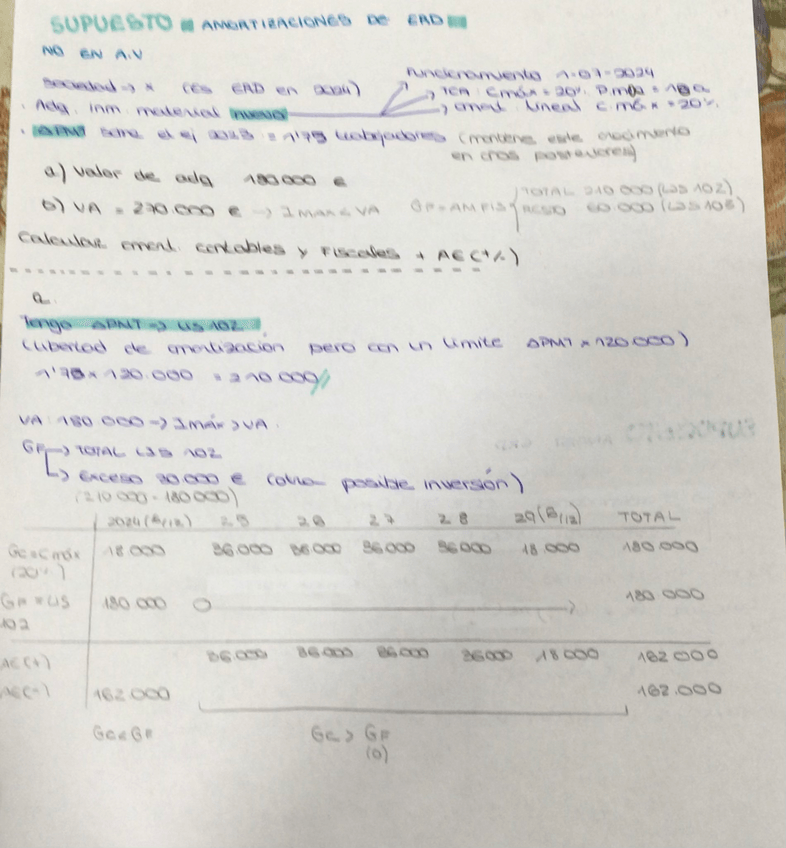 SUPUESTO AMORTIZACIONES DE ERD
NO EN A.V
Funcionamiento 1-07-2024
Sociedad → X (ES ERD en 2024) → TCA: Cmáx = 20%. Pmáx = 10 a
· Adq. inm. material nuevo → amort. lineal C máx = 20%.
· ΔPMT sobre el ej 2023 = 1'75 trabajadores (mantiene este incremento
en años posteriores)
a) Valor de adq 180.000 €
b) VA = 270.000 € → I MAX < VA GF = AM FIS TOTAL 210 000 (LIS 102)
RESTO 60.000 (LIS 103)
Calcular amort. contables y Fiscales + AE (+/-)
a.
Tengo ΔPMT → LIS 102
(Libertad de amortización pero con un límite ΔPMT x 120.000)
1'75 x 120.000 = 210 000 //
VA: 180 000 → I máx > VA.
GF → TOTAL LIS 102
↳ Exceso 30.000 € (otra posible inversión)
(210 000 - 180 000)
2024 (6/12) 25 26 27 28 29 (6/12) TOTAL
GC = C máx 18.000 36.000 36 000 36 000 36 000 18.000 180.000
(20%)
GF = LIS 180 000 0 → 180 000
102
AE (+) 36 000 36 000 36 000 36 000 18 000 162 000
AE (-) 162.000 162.000
GC < GF GC > GF
(0)